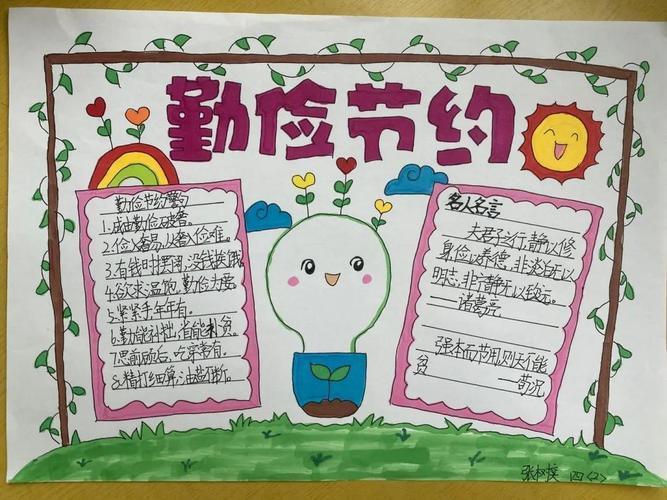 勤俭节约
勤俭节约
1.成由勤俭破奢。
2.俭入奢易,从奢入俭难。
3.有钱时摆阔,没钱挨饿
4.欲求温饱,勤俭为
5.紧紧手年年有。
6.勤能补拙,省能补贫。
7.思前顾后,吃穿常有。
8.精打细算,油盐不断。
名人名言
夫君子之行,静以修
身,俭以养德,非淡泊无以
明志,非宁静无以致远。
——诸葛亮
强本而节用,则天不能
贫
——荀况
四<2>